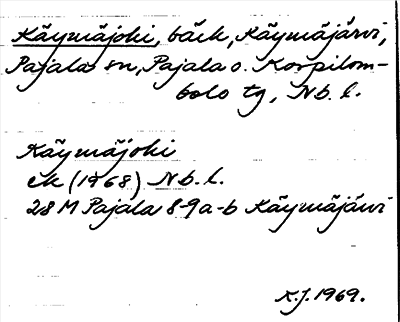 Käymäjoki, bäck, Käymäjärvi,
Pajala sn, Pajala o. Korpilom-
bolo tg, Nb. l.
Käymäjoki
ek (1968) Nb. l.
28 M Pajala 8-9a-b Käymäjärvi
K.J. 1969.